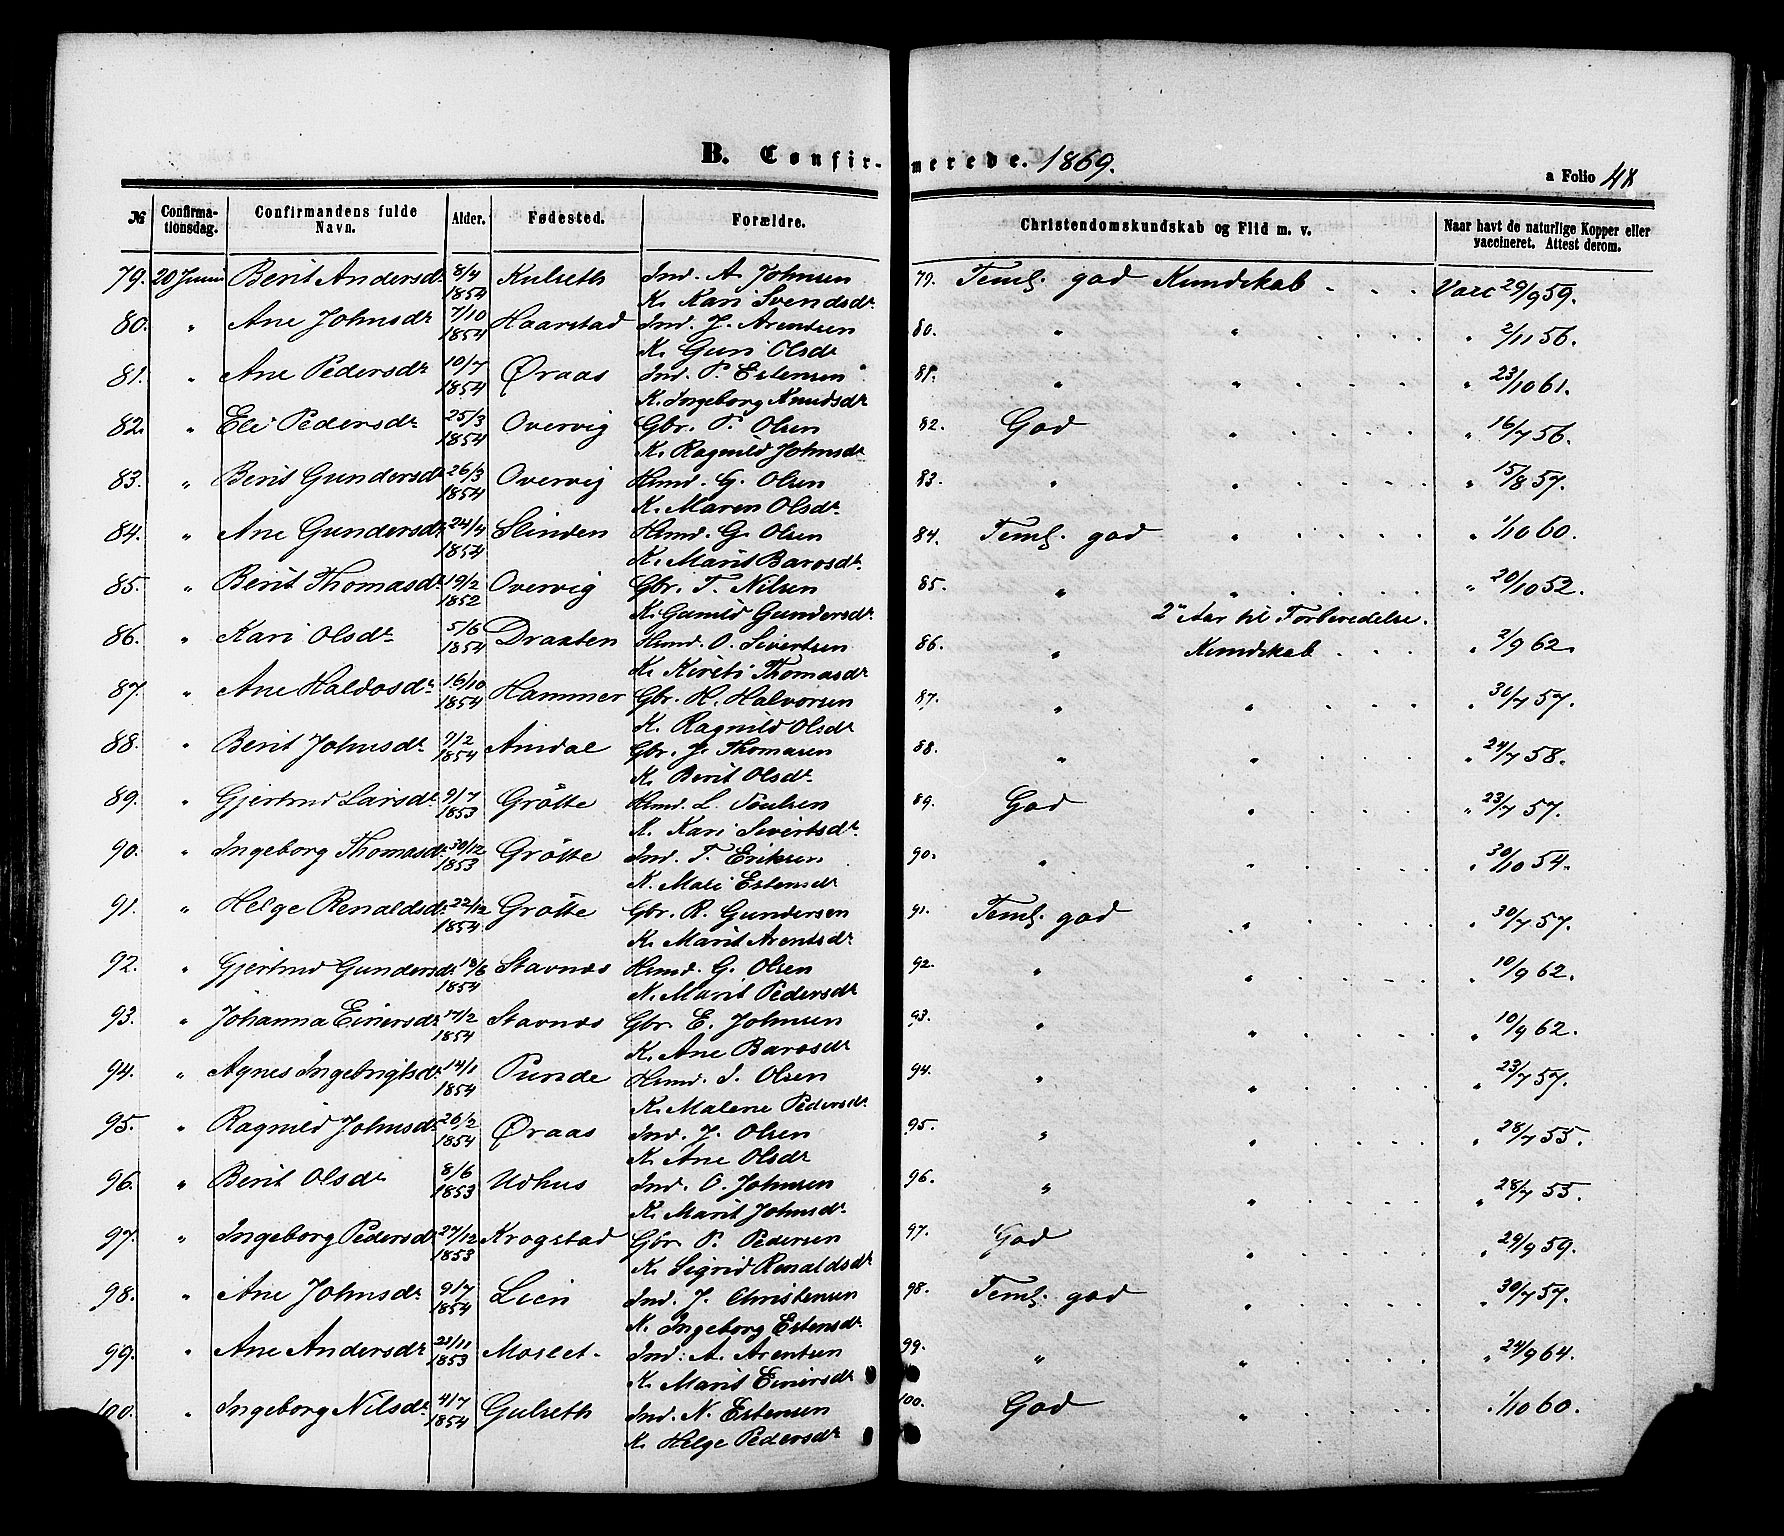 B. Confirmerede. 1869.
a Folio 48
№ Confirmationsdag. Confirmandens fulde Navn. Alder. Fødested. Forældre. Christendomskundskab og Flid m. v. Naar havt de naturlige Kopper eller vaccineret. Attest derom.
79. 20 Juni Berit Andersdr 8/4 1854 Kulseth Ind. A. Johnsen 79. Teml. god Kundskab . . . Vacc 29/9 59.
K. Kari Svendsdr
80. " Ane Johnsdr 7/10 1854 Haarstad Ind. J. Arentsen 80. " " . . . . " 2/11 56.
K. Guri Olsdr
81. " Ane Pedersdr 10/7 1854 Øraas Ind. P. Estensen 81. " " . . . . " 23/10 61.
K. Ingeborg Knudsdr
82. " Eli Pedersdr 25/3 1854 Overvig Gbr. P. Olsen 82. God " . . . . " 16/7 56.
K. Ragnild Johnsdr
83. " Berit Gundersdr 26/3 1854 Overvig Hsmd. G. Olsen 83. " " . . . . " 15/8 57.
K. Maren Olsdr.
84. " Ane Gundersdr 24/4 1854 Slinden Hsmd. G. Olsen 84. Teml. god " . . . . " 1/10 60.
K. Marit Barosdr.
85. " Berit Thomasdr. 19/2 1852 Overvig Gbr. T. Nilsen 85. " " . . . . " 20/10 52.
K. Gunild Gundersdr 2 Aar til Forberedelse.
86. " Kari Olsdr 5/6 1854 Draxten Hsmd. O. Sivertsen 86. " Kundskab . . . " 2/9 62.
K. Kirsti Thomasdr
87. " Ane Haldosdr 16/10 1854 Hammer Gbr. H. Halvorsen 87. " " . . . . " 30/7 57.
K. Ragnild Olsdr
88. " Berit Johnsdr. 9/2 1854 Amdal Gbr. J. Thomasen 88. " " . . . . " 24/7 58.
K. Berit Olsdr.
89. " Gjertrud Larsdr 9/7 1853 Grøtte Hsmd. L. Poulsen 89. God " . . . . " 23/7 57.
K. Kari Sivertsdr.
90. " Ingeborg Thomasdr. 30/12 1853 Grøtte Ind. T. Eriksen 90. " " . . . . " 30/10 54.
K. Mali Estensdr
91. " Helge Renaldsdr. 22/12 1854 Grøtte Gbr. R. Gundersen 91. Teml. god " . . . . " 30/7 57.
K. Marit Arentsdr
92. " Gjertrud Gundersdr. 18/6 1854 Stavnæs Hsmd. G. Olsen 92. " " . . . . " 10/9 62.
K. Marit Pedersdr
93. " Johanna Einersdr 17/2 1854 Stavnæs Gbr. E. Johnsen 93. " " . . . . " 10/9 62.
K. Ane Barosdr
94. " Agnes Ingebrigtsdr. 14/1 1854 Punde Hsmd. I. Olsen 94. " " . . . . " 23/7 57.
K. Malene Pedersdr
95. " Ragnild Johnsdr 26/2 1854 Øraas Ind. J. Olsen 95. " " . . . . " 28/7 55.
K. Ane Olsdr
96. " Berit Olsdr 8/6 1853 Udhus Ind. O. Johnsen 96. " " . . . . " 28/7 55.
K. Marit Johnsdr.
97. " Ingeborg Pedersdr 27/12 1853 Krogstad Gbr. P. Pedersen 97. God " . . . . " 29/9 59.
K. Sigrid Renaldsdr
98. " Ane Johnsdr. 9/7 1854 Lien Ind. J. Christensen 98. Teml. god " . . . . " 30/7 57.
K. Ingeborg Estensdr.
99. " Ane Andersdr 22/11 1853 Moslet. Ind. A. Arentsen 99. " " . . . . " 24/9 64.
K. Marit Einersdr
100. " Ingeborg Nilsdr. 4/7 1854 Gulseth Ind. N. Estensen 100. God " . . . . " 1/10 60.
K. Helge Pedersdr